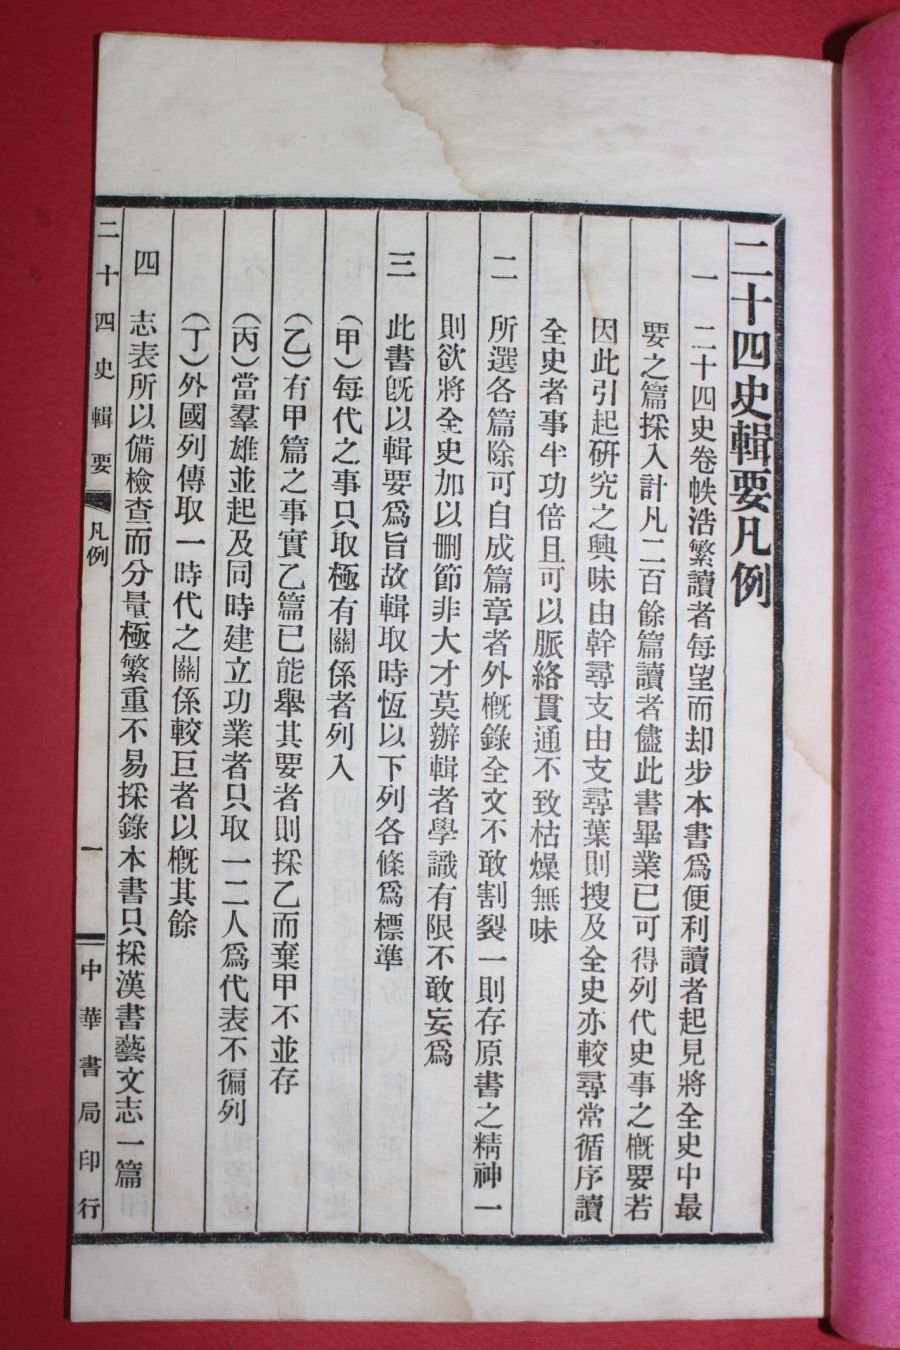 二十四史輯要凡例
一 二十四史卷帙浩繁讀者每望而却步本書爲便利讀者起見將全史中最
要之篇採入計凡二百餘篇讀者儘此書畢業已可得列代史事之概要若
因此引起研究之興味由幹尋支由支尋葉則搜及全史亦較尋常循序讀
全史者事半功倍且可以脈絡貫通不致枯燥無味
二 所選各篇除可自成篇章者外概錄全文不敢割裂一則存原書之精神一
則欲將全史加以刪節非大才莫辦輯者學識有限不敢妄爲
三 此書旣以輯要爲旨故輯取時恆以下列各條爲標準
（甲）每代之事只取極有關係者列入
（乙）有甲篇之事實乙篇已能舉其要者則採乙而棄甲不並存
（丙）當羣雄並起及同時建立功業者只取一二人爲代表不徧列
（丁）外國列傳取一時代之關係較巨者以概其餘
四 志表所以備檢查而分量極繁重不易採錄本書只採漢書藝文志一篇
二十四史輯要 凡例 一 中華書局印行